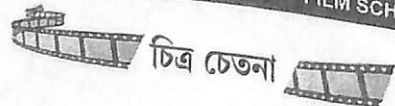 FILM SCH
চিত্র চেতনা